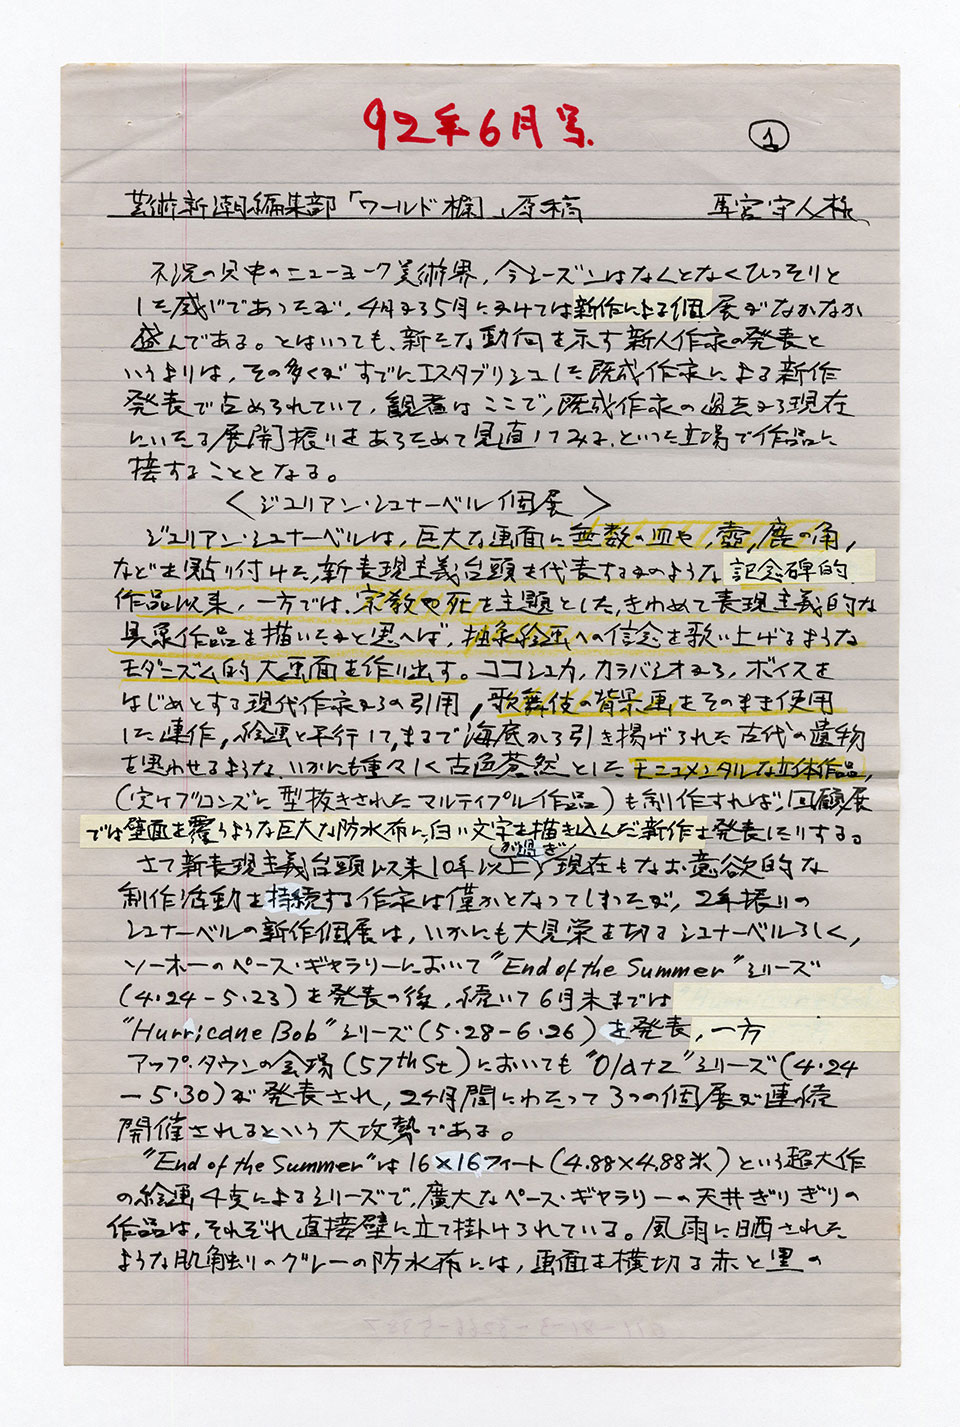 92年6月号.
①
芸術新潮編集部「ワールド欄」原稿 馬宮守人様
不況の只中のニューヨーク美術界，今シーズンはなんとなくひっそりと
した感じであったが，4月から5月にかけては新作による個展がなかなか
盛んである。とはいっても、新たな動向を示す新人作家の発表と
いうよりは，その多くがすでにエスタブリシュした既成作家による新作
発表で占められていて，観者はここで，既成作家の過去から現在
にいたる展開振りをあらためて見直してみる，といった立場で作品に
接することとなる。
〈ジュリアン・シュナーベル個展〉
ジュリアン・シュナーベルは，巨大な画面に無数の皿や，壺，鹿の角，
などを貼り付けた，新表現主義台頭を代表するかのような記念碑的
作品以来，一方では，宗教や死を主題とした，きわめて表現主義的な
具象作品を描いたかと思へば，抽象絵画への信念を歌い上げるような
モダニズム的大画面を作り出す。ココシュカ，カラバシオから，ボイスを
はじめとする現代作家からの引用，歌舞伎の背景画をそのまま使用
した連作，絵画と平行して，まるで海底から引き揚げられた古代の遺物
を思わせるような，いかにも重々しく古色蒼然としたモニュメンタルな立体作品，
（実はブロンズに型抜きされたマルティプル作品）も制作すれば，回顧展
では壁面を覆うような巨大な防水布に，白い文字を描き込んだ新作を発表したりする。
さて新表現主義台頭以来10年以上が過ぎ現在もなお意欲的な
制作活動を持続する作家は僅かとなってしまったが，2年振りの
シュナーベルの新作個展は，いかにも大見栄を切るシュナーベルらしく，
ソーホーのペース・ギャラリーにおいて"End of the Summer"シリーズ
（4・24－5・23）を発表の後，続いて6月末までは
"Hurricane Bob"シリーズ（5・28－6・26）を発表，一方
アップ・タウンの会場（57th St）においても"Olatz"シリーズ（4・24
－5・30）が発表され，2ヶ月間にわたって3つの個展が連続
開催されるという大攻勢である。
"End of the Summer"は16×16フィート（4.88×4.88米）という超大作
の絵画4点によるシリーズで，廣大なペース・ギャラリーの天井ぎりぎりの
作品は，それぞれ直接壁に立て掛けられている。風雨に晒された
ような肌触りのグレーの防水布には，画面を横切る赤と黒の